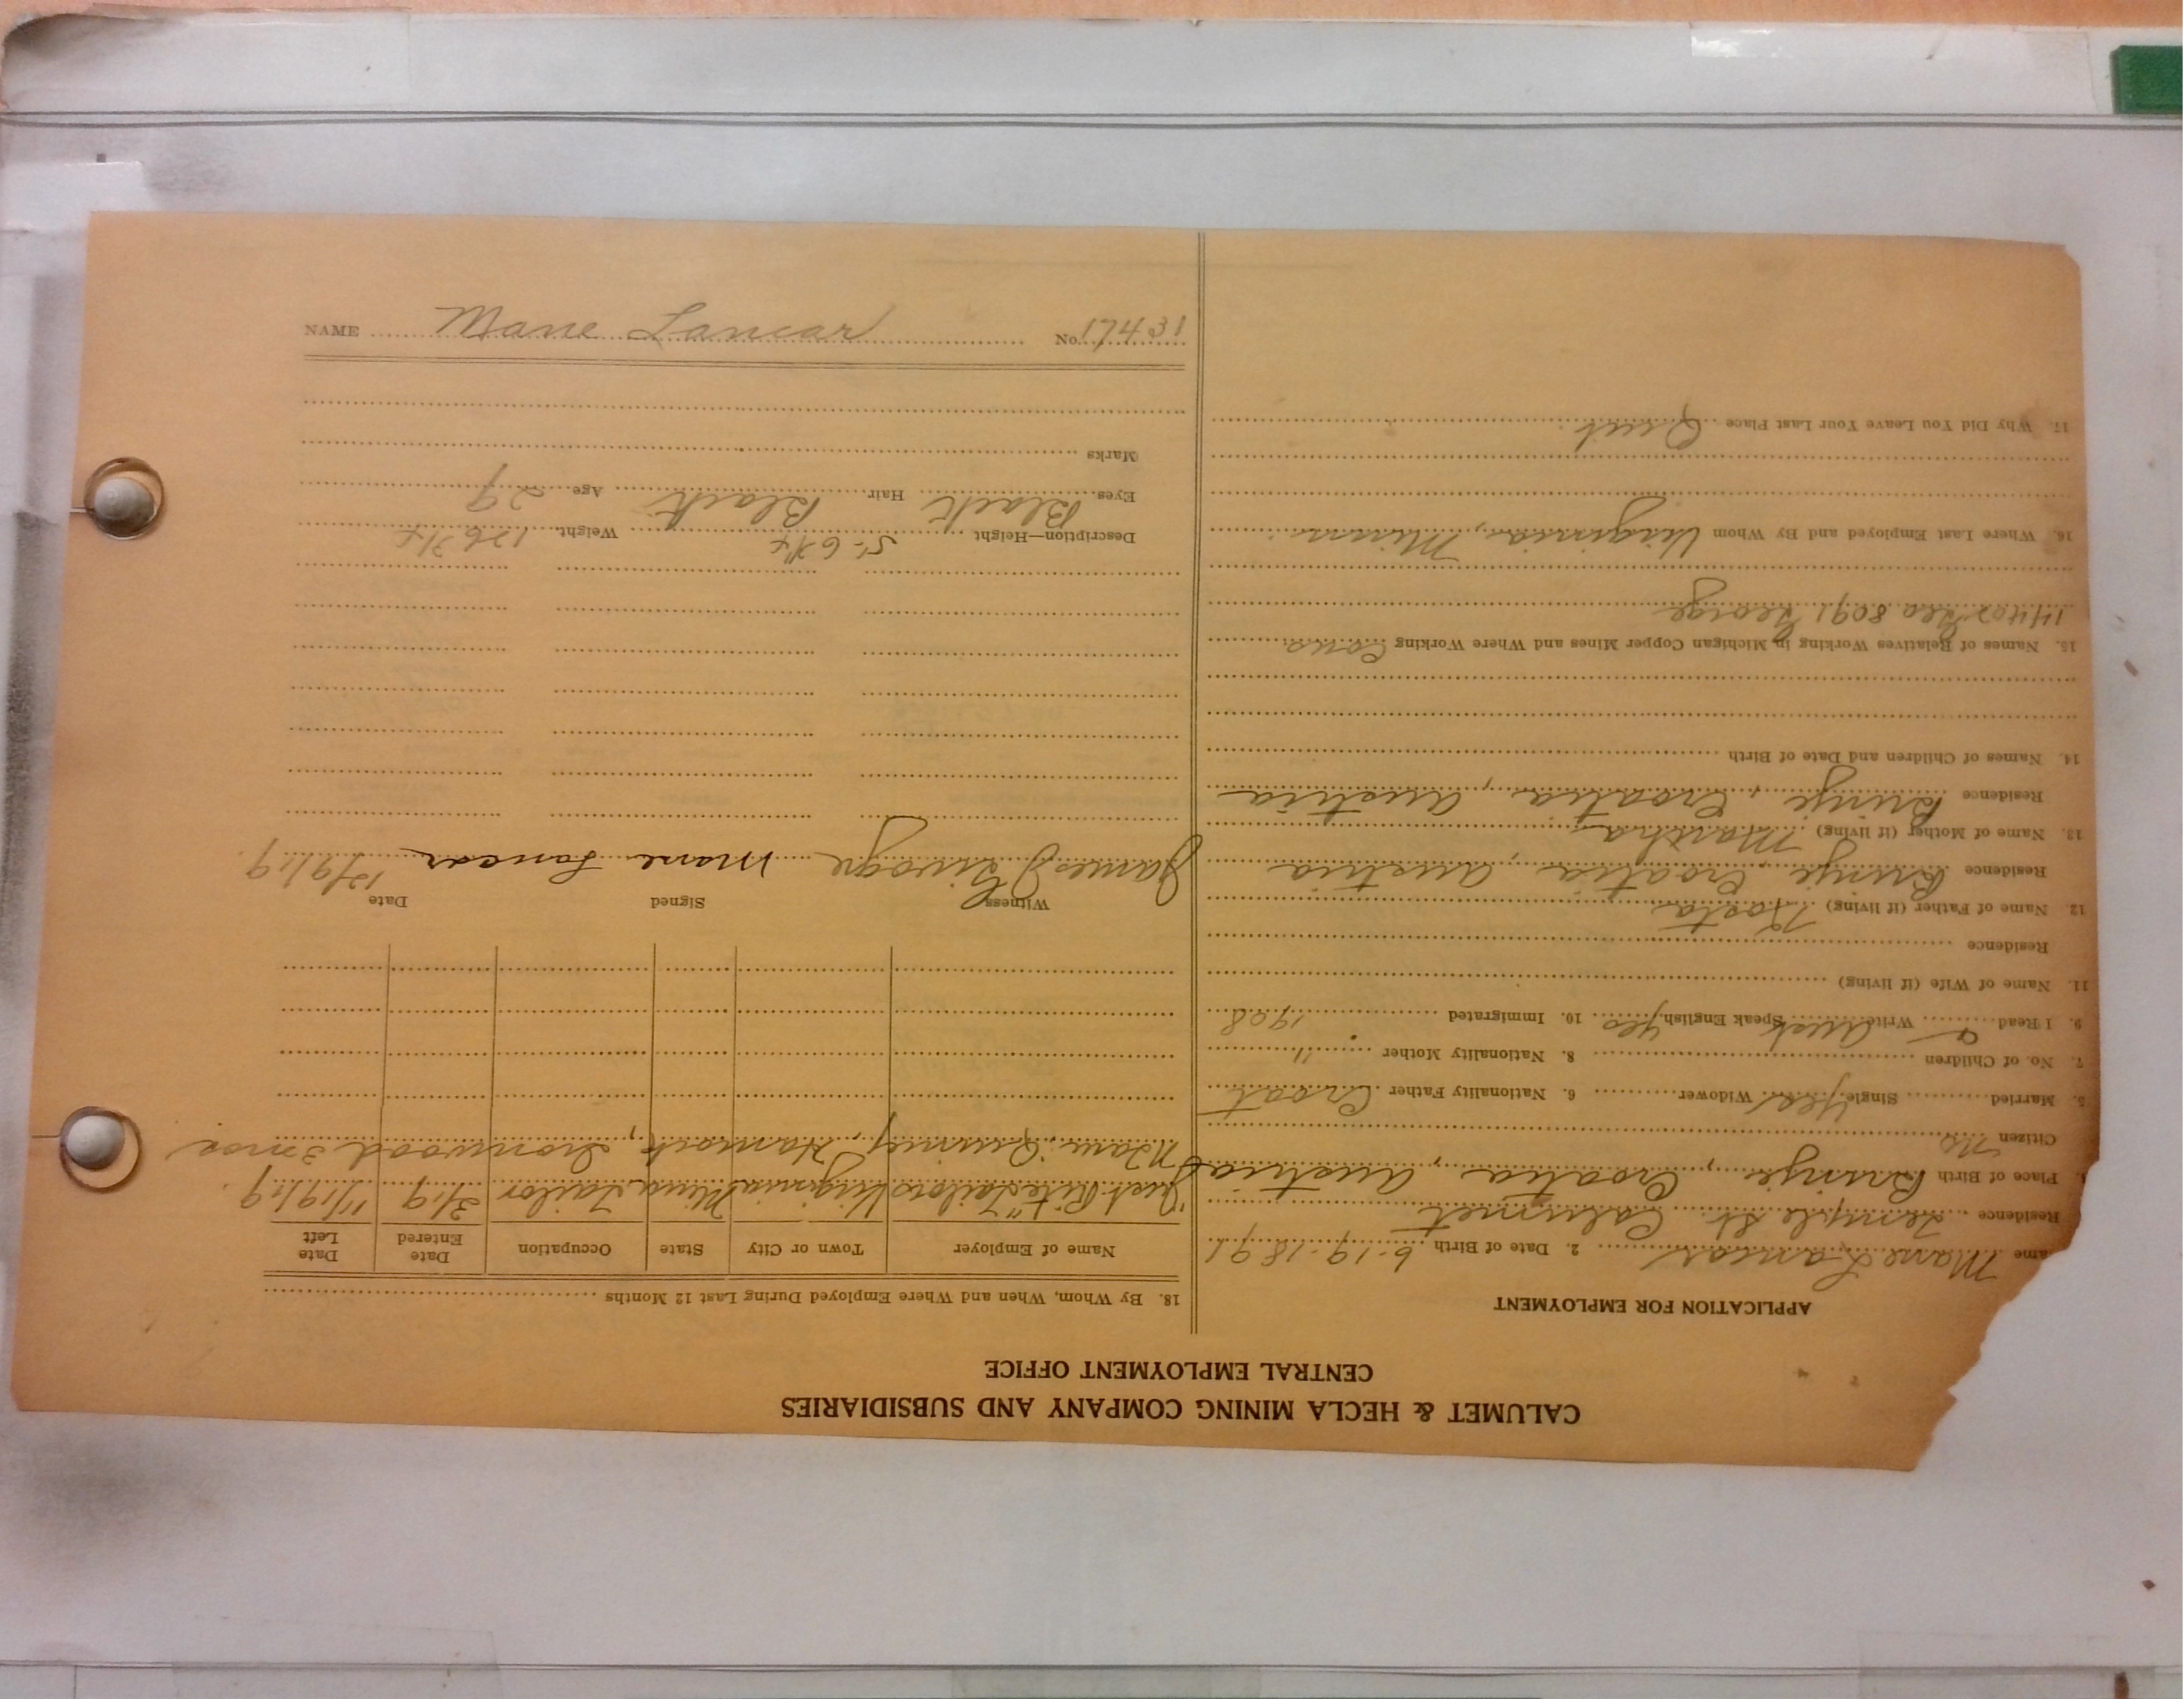 CALUMET & HECLA MINING COMPANY AND SUBSIDIARIES
CENTRAL EMPLOYMENT OFFICE
APPLICATION FOR EMPLOYMENT
ame Mane Lancar 2. Date of Birth 6-19-1891
Residence Temple St. Calumet
Place of Birth Brinje, Croatia, Austria
Citizen No
5. Married Single Yes Widower 6. Nationality Father Croat
7. No. of Children 8. Nationality Mother "
9. I Read Write Aust Speak English yes 10. Immigrated 1908
11. Name of Wife (if living)
Residence
12. Name of Father (if living) Kosta
Residence Brinje, Croatia, Austria
13. Name of Mother (if living) Martha
Residence Brinje, Croatia, Austria
14. Names of Children and Date of Birth
15. Names of Relatives Working in Michigan Copper Mines and Where Working Cous
14402 Geo 8091 George
16. Where Last Employed and By Whom Virginia, Minn.
17. Why Did You Leave Your Last Place Quit
18. By Whom, When and Where Employed During Last 12 Months
Name of Employer Town or City State Occupation Date Entered Date Left
"Just Rite" Tailors Virginia Minn Tailor 3/19 11/19/19
Quincy, Hancock, Ironwood 3 mos
Witness Signed Date
James Mane Lancar 12/9/19
Description—Height 5-6 3/4 Weight 126 3/4
Eyes Black Hair Black Age 29
Marks
NAME Mane Lancar No. 17431